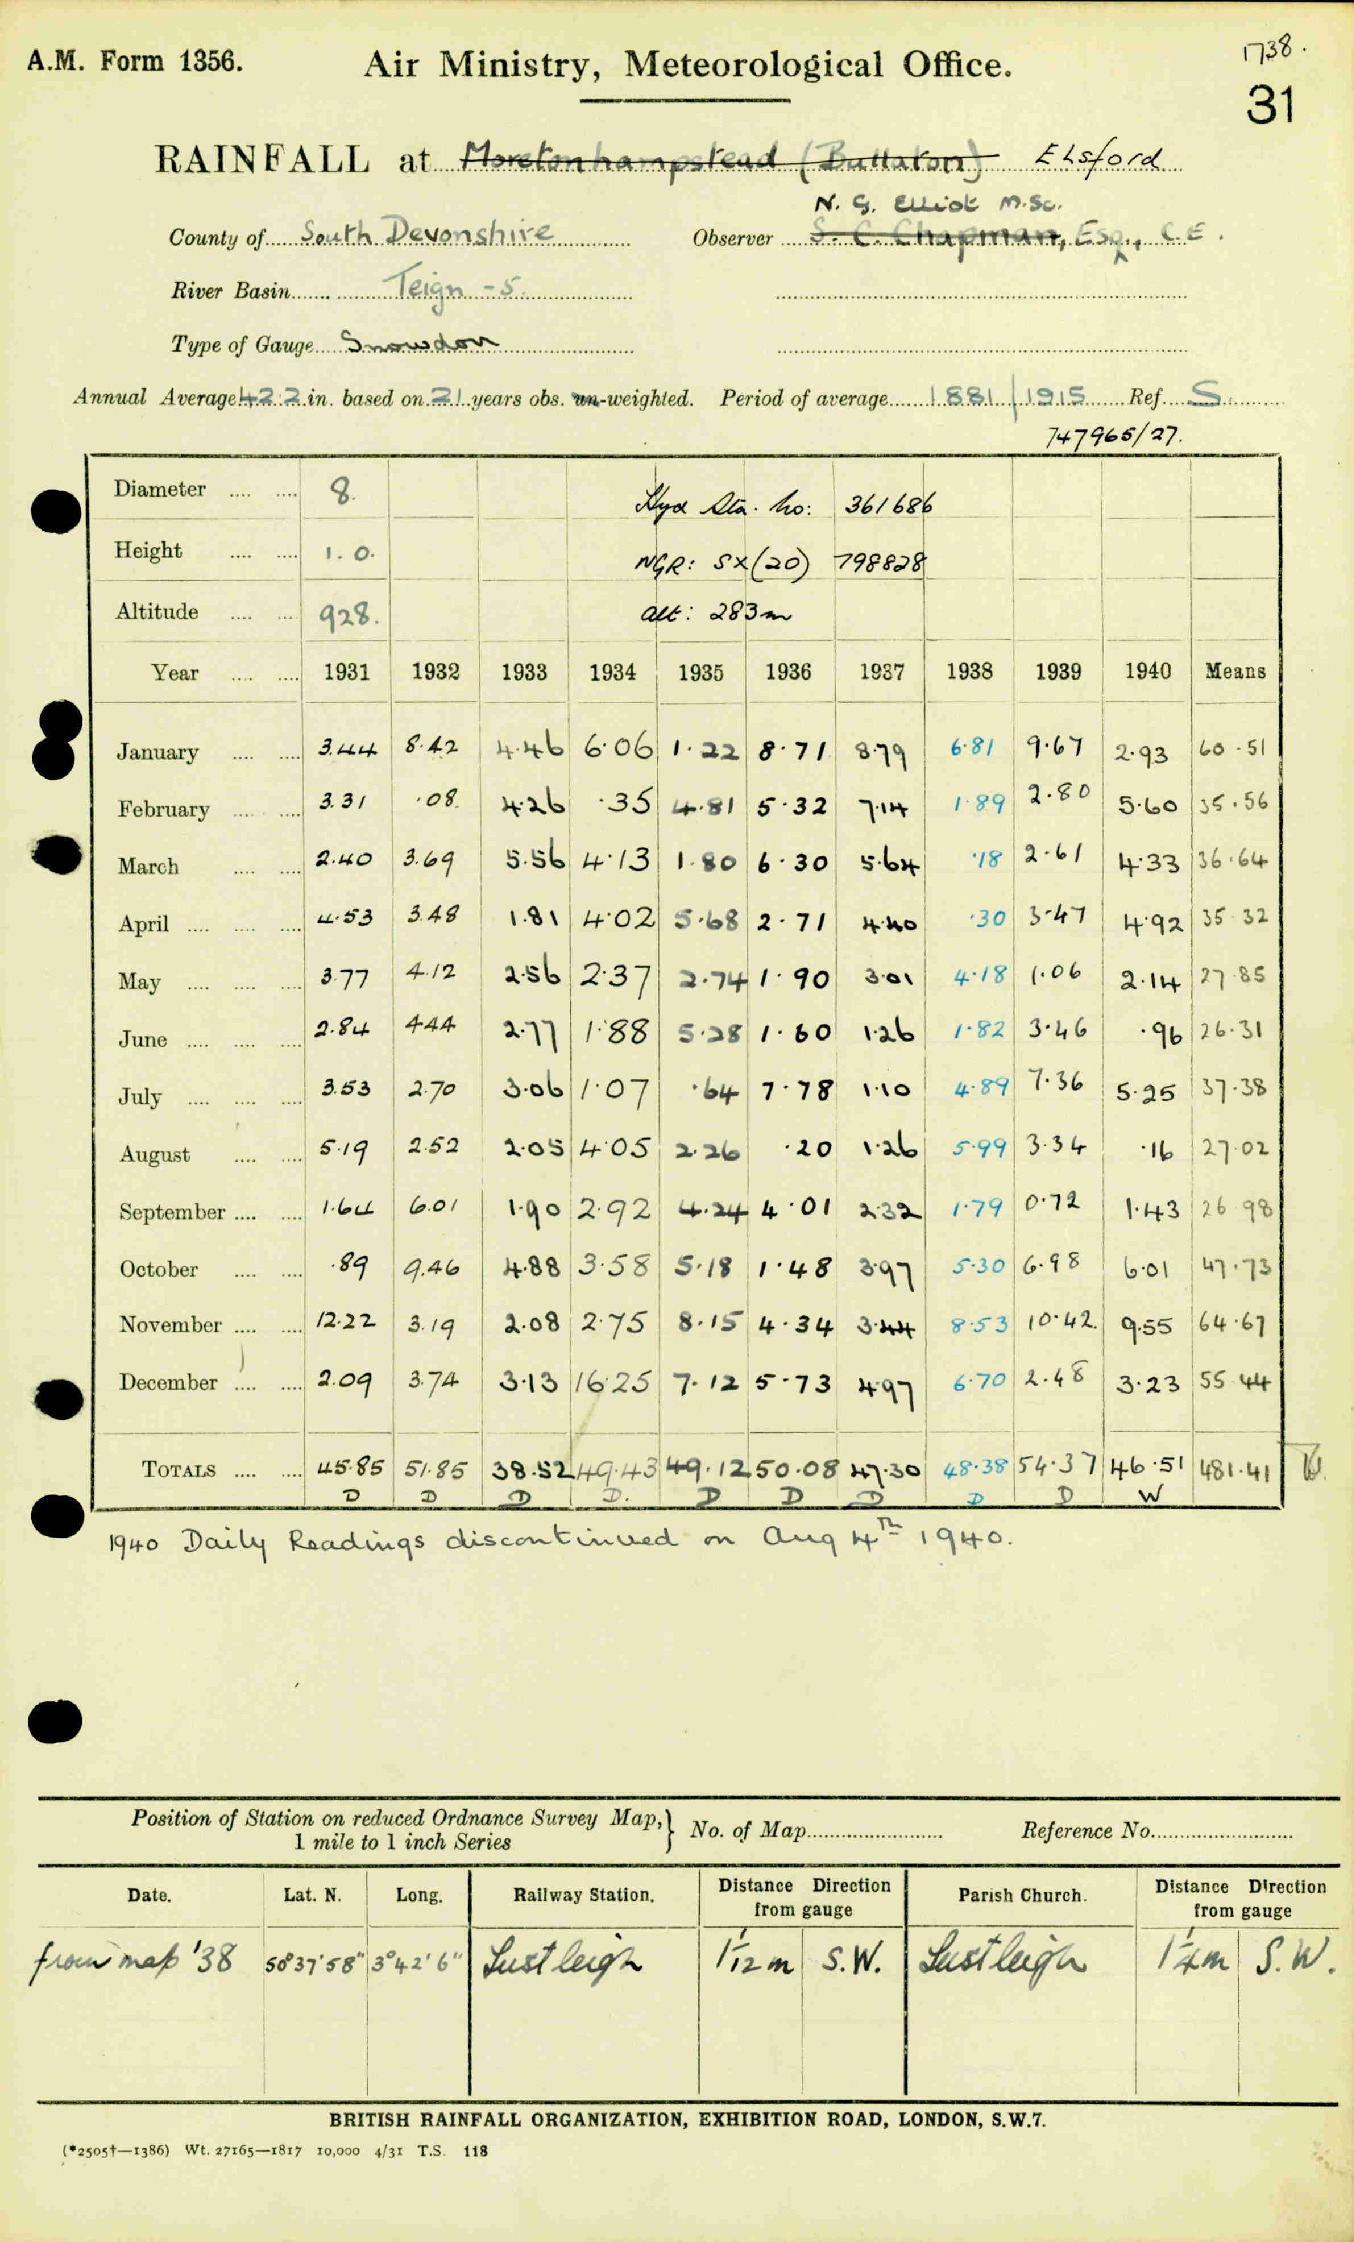 1738.
A.M. Form 1356. Air Ministry, Meteorological Office.
31
RAINFALL at Moretonhampstead (Bullaton) Elsford
N. G. Elliot M.Sc.
County of South Devonshire Observer S. C. Chapman, Esq., C.E.
River Basin Teign - 5.
Type of Gauge Snowdon
Annual Average 42.2 in. based on 21 years obs. un-weighted. Period of average 1881/1915 Ref. S.
747965/27.
Diameter 8. Hyd Sta. No: 361686
Height 1. 0. NGR: SX(20) 798828
Altitude 928. alt: 283m
Year 1931 1932 1933 1934 1935 1936 1937 1938 1939 1940 Means
January 3.44 8.42 4.46 6.06 1.22 8.71 8.79 6.81 9.67 2.93 60.51
February 3.31 .08 4.26 .35 4.81 5.32 7.14 1.89 2.80 5.60 35.56
March 2.40 3.69 5.56 4.13 1.80 6.30 5.64 .18 2.61 4.33 36.64
April 4.53 3.48 1.81 4.02 5.68 2.71 4.40 .30 3.47 4.92 35.32
May 3.77 4.12 2.56 2.37 2.74 1.90 3.01 4.18 1.06 2.14 27.85
June 2.84 4.44 2.77 1.88 5.28 1.60 1.26 1.82 3.46 .96 26.31
July 3.53 2.70 3.06 1.07 .64 7.78 1.10 4.89 7.36 5.25 37.38
August 5.19 2.52 2.05 4.05 2.26 .20 1.26 5.99 3.34 .16 27.02
September 1.64 6.01 1.90 2.92 4.24 4.01 2.32 1.79 0.72 1.43 26.98
October .89 9.46 4.88 3.58 5.18 1.48 3.97 5.30 6.98 6.01 47.73
November 12.22 3.19 2.08 2.75 8.15 4.34 3.44 8.53 10.42 9.55 64.67
December 2.09 3.74 3.13 16.25 7.12 5.73 4.97 6.70 2.48 3.23 55.44
TOTALS 45.85 51.85 38.52 49.43 49.12 50.08 47.30 48.38 54.37 46.51 481.41
D D D D. D D D D D W
1940 Daily Readings discontinued on Aug 4th 1940.
Position of Station on reduced Ordnance Survey Map, 1 mile to 1 inch Series } No. of Map Reference No.
Date. Lat. N. Long. Railway Station. Distance Direction from gauge Parish Church. Distance Direction from gauge
from map '38 50°37'58" 3°42'6" Lustleigh 1 1/2 m S.W. Lustleigh 1 1/4 m S.W.
BRITISH RAINFALL ORGANIZATION, EXHIBITION ROAD, LONDON, S.W.7.
(*2505†—1386) Wt. 27165—1817 10,000 4/31 T.S. 118